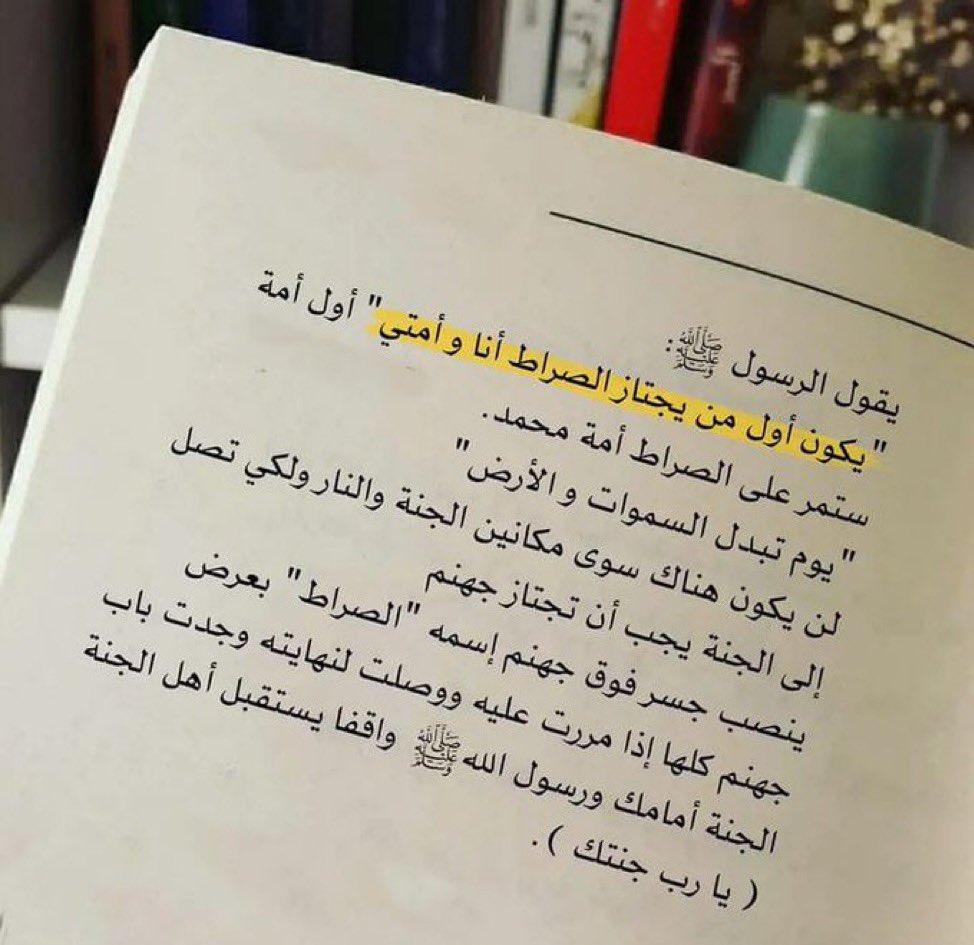 يقول الرسول ﷺ:
"يكون أول من يجتاز الصراط أنا و أمتي" أول أمة
ستمر على الصراط أمة محمد.
"يوم تبدل السموات و الأرض"
لن يكون هناك سوى مكانين الجنة والنار ولكي تصل
إلى الجنة يجب أن تجتاز جهنم
ينصب جسر فوق جهنم إسمه "الصراط" بعرض
جهنم كلها إذا مررت عليه ووصلت لنهايته وجدت باب
الجنة أمامك ورسول الله ﷺ واقفا يستقبل أهل الجنة
( يا رب جنتك ).